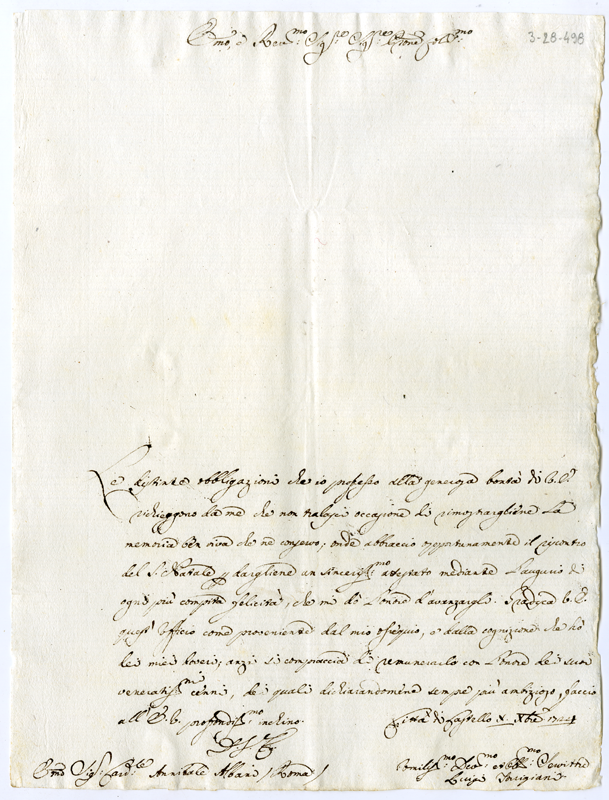 3-28-498
E.mo, e Rev.mo Sig.re Sig.re Prone Col.mo
Le distinte obbligazioni che io professo alla generosa bontà di V.E.
richieggono da me che non tralasci occasione di rimostrargliene la
memoria ben viva che ne conservo; onde abbraccio opportunamente il riscontro
del S. Natale p dargliene un sinceriss.mo attestato mediante l'augurio di
ogni più compita felicità, che mi dò l'onore d'avanzargli. Gradisca V.E.
quest'Ufficio come proveniente dal mio ossequio, e dalla cognizione che hò
de miei doveri; anzi si compiaccia di remunerarlo con l'onore de suoi
veneratiss.mi cenni, de quali dichiarandomene sempre più ambizioso, faccio
all'E.V. profondiss.mo inchino.
Città di Castello X Xbre 1744
D.V.E.
Emo Sig.r Card.le Annibale Albani (Roma)
Umiliss.mo Dev.mo et Obb.mo Servitre
Luigi